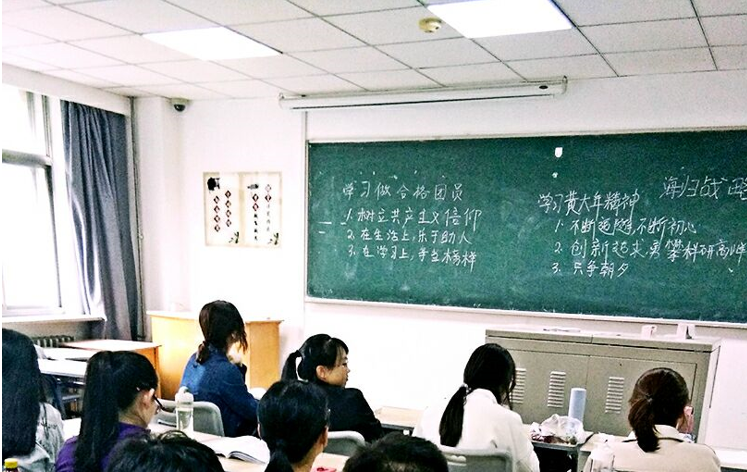 学习做合格团员
1. 树立共产主义信仰
2. 在生活上,乐于助人
3. 在学习上,争立榜样
学习黄大年精神
1. 不断追随,不断初心
2. 创新追求,勇攀科研高峰
3. 只争朝夕
海归战略